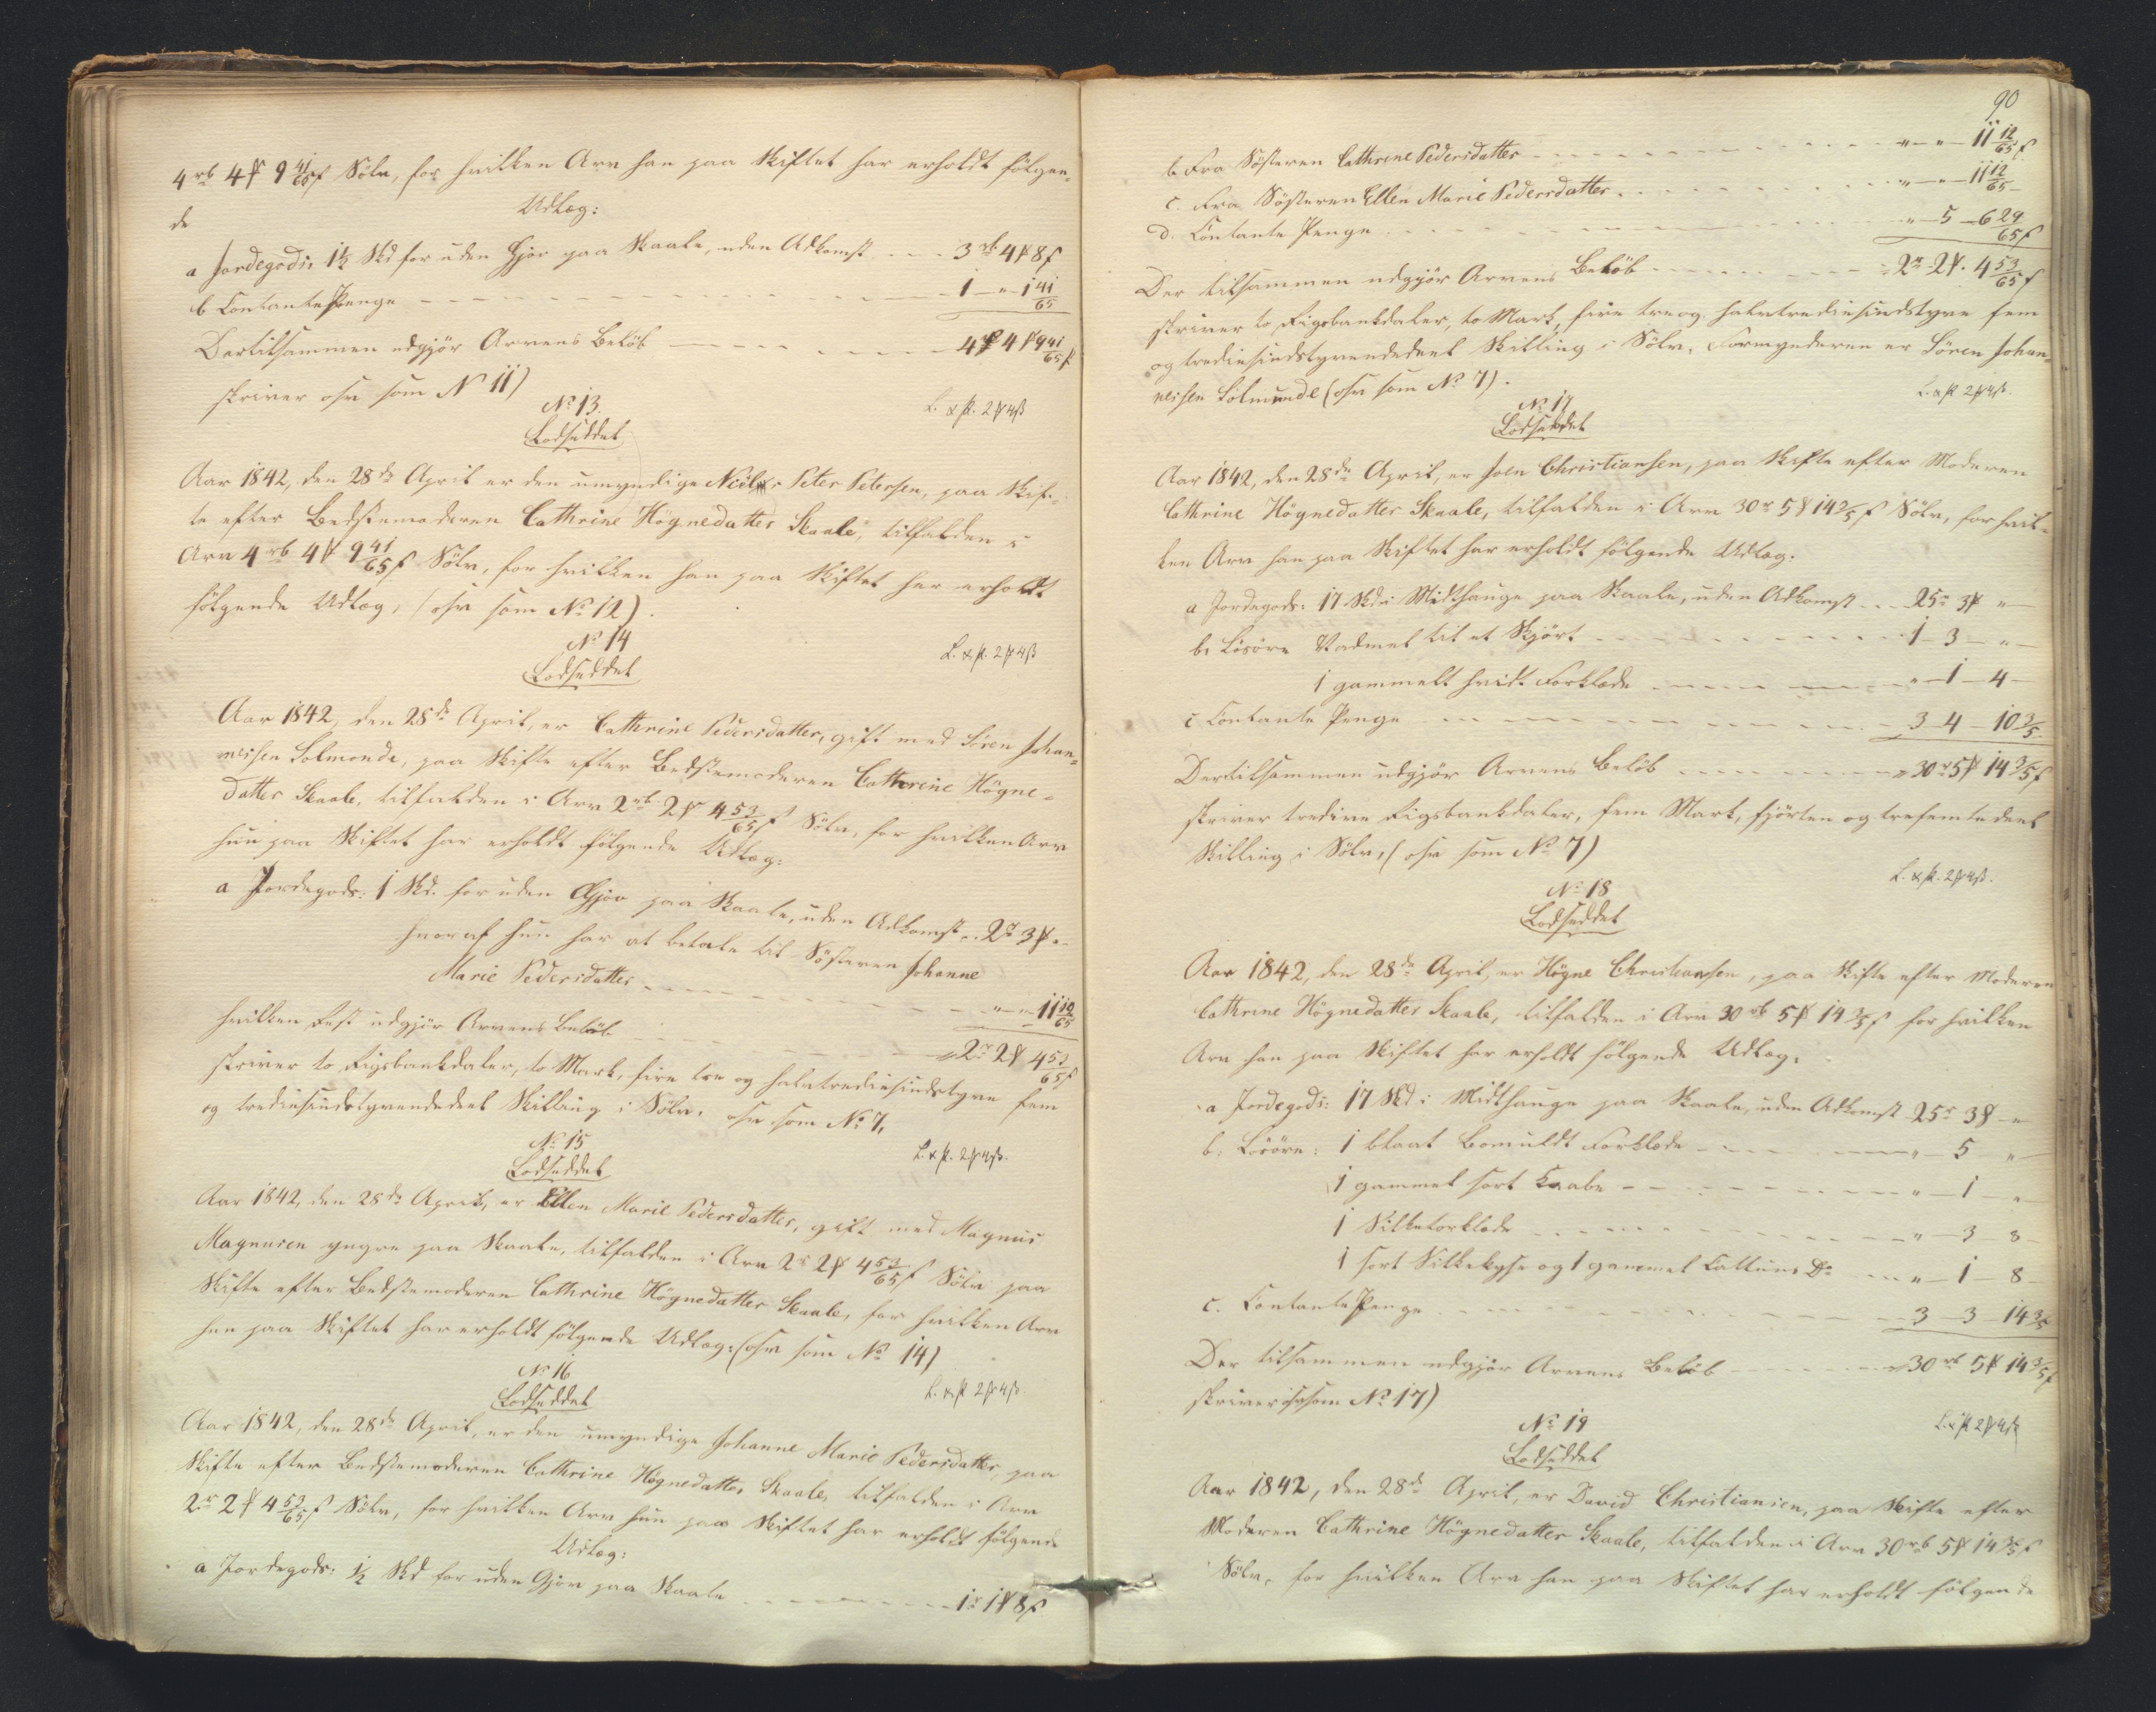 4 rb 4 ₻ 9 41/65 ß Sölv, for hvilken Arv han paa Skiftet har erholdt fölgen-
de
Udlæg:
a Jordegods: 1½ Skd for uden Gjöv paa Skaale, uden Adkomst 3 rb 4 ₻ 8 ß
b Contante Penge 1 - " - 1 41/65
Dertilsammen udgjör Arvens Belöb 4 ₻ 4 ₻ 9 41/65 ß
skriver osv som N 11)
L. & st. 2 ₻ 4 ß
No 13.
Lodseddel
Aar 1842, den 28de April er den umyndige Neils Peter Petersen, paa Skif-
te efter Bedstemoderen Cathrine Högnedatter Skaale, tilfalden i
Arv 4 rb 4 ₻ 9 41/65 ß Sölv, for hvilken han paa Skiftet har erholdt
fölgende Udlæg, (osv som No 12).
L. & st. 2 ₻ 4 ß
No 14
Lodseddel
Aar 1842, den 28de April, er Cathrine Pedersdatter, gift med Sören Johan-
nesen Solmonde, paa Skifte efter Bedstemoderen Cathreine Högne-
datter Skaale, tilfalden i Arv 2 rb 2 ₻ 4 53/65 ß Sölv, for hvilken Arv
hun paa Skiftet har erholdt fölgende Udlæg:
a Jordegods: 1 Skd. for uden Gjöv paa Skaale, uden Adkomst 2 r 3 ₻ "
hvoraf hun har at betale til Sösteren Johanne
Marie Pedersdatter " - " - 11 12/65
hvilken Rest udgjör Arvens Belöb 2 r 2 ₻ 4 53/65 ß
skriver to Rigsbankdaler, to Mark, fire tre og halvtrediesindstyve fem
og trediesindstyvendedeel Skilling i Sölv. osv som No 7.
L. & st. 2 ₻ 4 ß.
No 15
Lodseddel
Aar 1842, den 28de April, er Ellen Marie Pedersdatter, gift med Magnus
Magnusen yngre paa Skaale, tilfalden i Arv 2 r 2 ₻ 4 53/65 ß Sölv paa
Skifte efter Bedstemoderen Cathrine Högnedatter Skaale, for hvilken Arv
hun paa Skiftet har erholdt fölgende Udlæg: (osv som No 14)
L. & st 2 ₻ 4 ß.
No 16
Lodseddel
Aar 1842, den 28de April, er den umyndige Johanne Marie Pedersdatter, paa
Skifte efter Bedstemoderen Cathrine Högnedatter Skaale, tilfalden i Arv
2 r 2 ₻ 4 53/65 ß Sölv, for hvilken Arv hun paa Skiftet har erholdt fölgende
Udlæg:
a Jordegods: ½ Skd for uden Gjöv paa Skaale 1 r 1 ₻ 8 ß
90
b. Fra Sösteren Cathrine Pedersdatter " - " - 11 12/65 ß
c. Fra Sösteren Ellen Marie Pedersdatter " - " - 11 12/65
d. Contante Penge " - 5 - 6 29/65 ß
Der tilsammen udgjör Arvens Belöb 2 r 2 ₻. 4 53/65 ß
skriver to Rigsbankdaler, to Mark, fire treog halvtrediesindstyve fem
og trediesindstyvendedeel Skilling i Sölv. Formynderen er Sören Johan-
nesen Solmunde (osv som No 7).
L. & st 2 ₻ 4 ß.
No 17
Lodseddel
Aar 1842, den 28de April, er Joen Christiansen, paa Skifte efter Moderen
Cathrine Högnedatter Skaale, tilfalden i Arv 30 r 5 ₻ 14 3/5 ß Sölv, for hvil-
ken Arv han paa Skiftet har erholdt fölgende Udlæg.
a Jordegods: 17 Skd i Midthauge paa Skaale, uden Adkomst 25 r 3 ₻ "
b. Lösöre Vadmel til et Skjört 1 - 3 - "
1 gammelt hvidt Forklæde " - 1 - 4
c Contante Penge 3 4 - 10 3/5
Dertilsammen udgjör Arvens Belöb 30 r 5 ₻ 14 3/5 ß
skriver tredive Rigsbankdaler, fem Mark, fjorten og trefemtedeel
Skilling i Sölv, (osv som No 7)
L. & st. 2 ₻ 4 ß.
No 18
Lodseddel
Aar 1842, den 28de April, er Högne Christiansen, paa Skifte efter Moderen
Cathrine Högnedatter Skaale, tilfalden i Arv 30 rb 5 ₻ 14 3/5 ß for hvilken
Arv han paa Skiftet har erholdt fölgende Udlæg.
a Jordegods: 17 Skd i Midthauge paa Skaale, uden Adkomst 25 r 3 ₻ - "
b. Lösöre: 1 blaat Bomuldt Forklæde " - 5 "
1 gammel sort Kaabe " - 1 - "
1 Silketörklæde " - 3 - 8
1 sort Silkekyse og 1 gammel Cattuns Do " - 1 - 8
c. Contante Penge 3 - 3 - 14 3/5
Der tilsammen udgjör Arvens Belöb 30 rb 5 ₻ 14 3/5 ß
skriver osv som No 17)
L. & st 2 ₻ 4 ß
No 19
Lodseddel
Aar 1842, den 28de April, er David Christiansen, paa Skifte efter
Moderen Cathrine Högnedatter Skaale, tilfalden i Arv 30 rb 5 ₻ 14 3/5 ß
Sölv, for hvilken Arv han paa Skiftet har erholdt fölgende